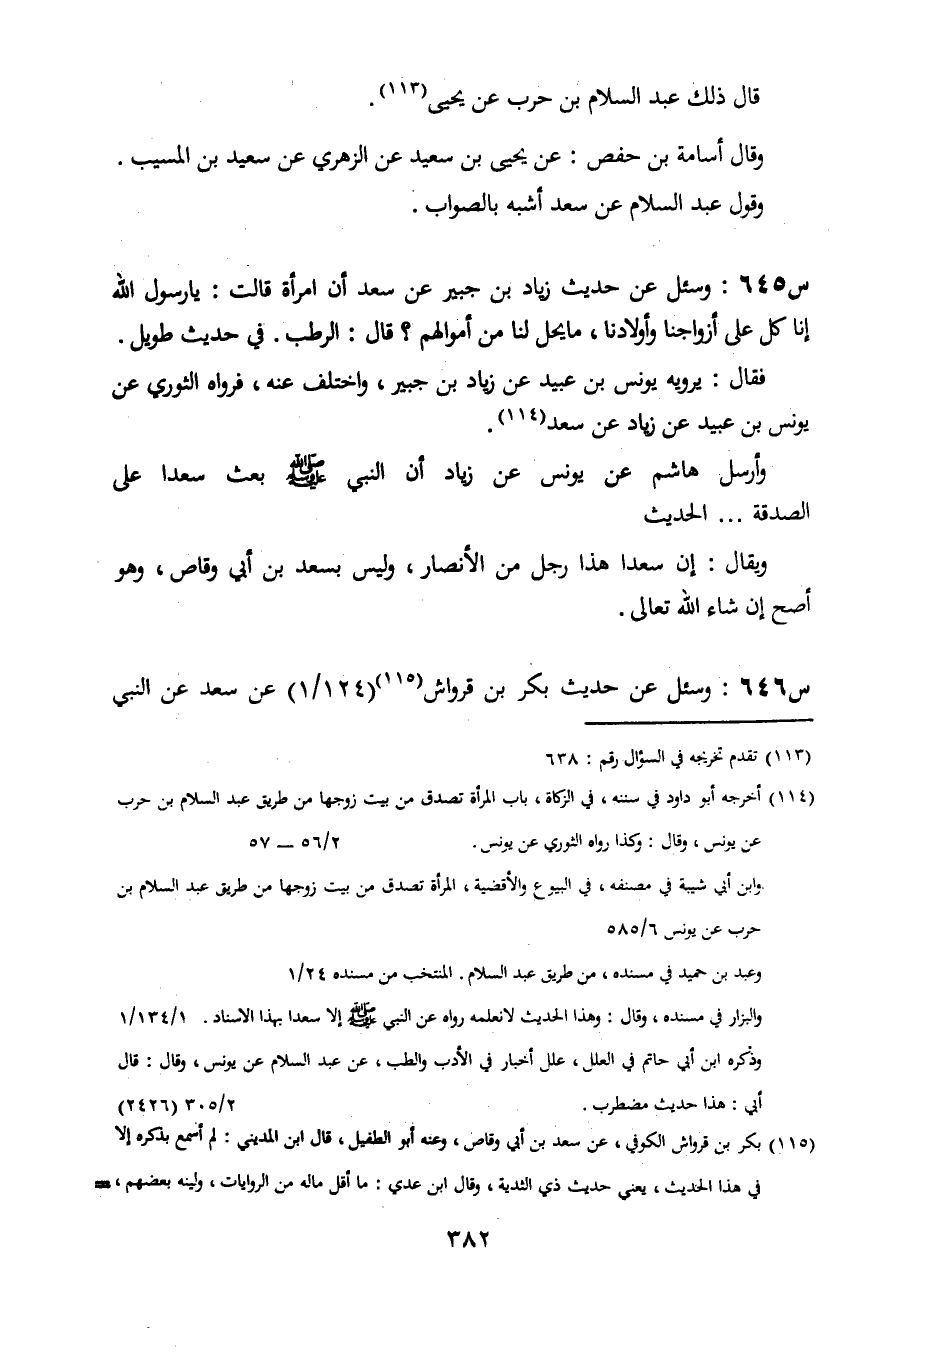 قال ذلك عبد السلام بن حرب عن يحيى(١١٣).
وقال أسامة بن حفص : عن يحيى بن سعيد عن الزهري عن سعيد بن المسيب .
وقول عبد السلام عن سعد أشبه بالصواب .
س٦٤٥ : وسئل عن حديث زياد بن جبير عن سعد أن امرأة قالت : يارسول الله
إنا كل على أزواجنا وأولادنا ، مايحل لنا من أموالهم ؟ قال : الرطب . في حديث طويل .
فقال : يرويه يونس بن عبيد عن زياد بن جبير ، واختلف عنه ، فرواه الثوري عن
يونس بن عبيد عن زياد عن سعد(١١٤).
وأرسل هاشم عن يونس عن زياد أن النبي ﷺ بعث سعدا على
الصدقة ... الحديث
ويقال : إن سعدا هذا رجل من الأنصار ، وليس بسعد بن أبي وقاص ، وهو
أصح إن شاء الله تعالى .
س٦٤٦ : وسئل عن حديث بكر بن قرواش(١١٥)(١/١٢٤) عن سعد عن النبي
(١١٣) تقدم تخريجه في السؤال رقم : ٦٣٨
(١١٤) أخرجه أبو داود في سننه ، في الزكاة ، باب المرأة تصدق من بيت زوجها من طريق عبد السلام بن حرب
عن يونس ، وقال : وكذا رواه الثوري عن يونس . ٥٦/٢ — ٥٧
وابن أبي شيبة في مصنفه ، في البيوع والأقضية ، المرأة تصدق من بيت زوجها من طريق عبد السلام بن
حرب عن يونس ٥٨٥/٦
وعبد بن حميد في مسنده ، من طريق عبد السلام . المنتخب من مسنده ١/٢٤
والبزار في مسنده ، وقال : وهذا الحديث لانعلمه رواه عن النبي ﷺ إلا سعدا بهذا الاسناد . ١/١٣٤/١
وذكره ابن أبي حاتم في العلل ، علل أخبار في الأدب والطب ، عن عبد السلام عن يونس ، وقال : قال
أبي : هذا حديث مضطرب . ٣٠٥/٢ (٢٤٢٦)
(١١٥) بكر بن قرواش الكوفي ، عن سعد بن أبي وقاص ، وعنه أبو الطفيل ، قال ابن المديني : لم أسمع بذكره إلا
في هذا الحديث ، يعني حديث ذي الثدية ، وقال ابن عدي : ما أقل ماله من الروايات ، ولينه بعضهم ، =
٣٨٢